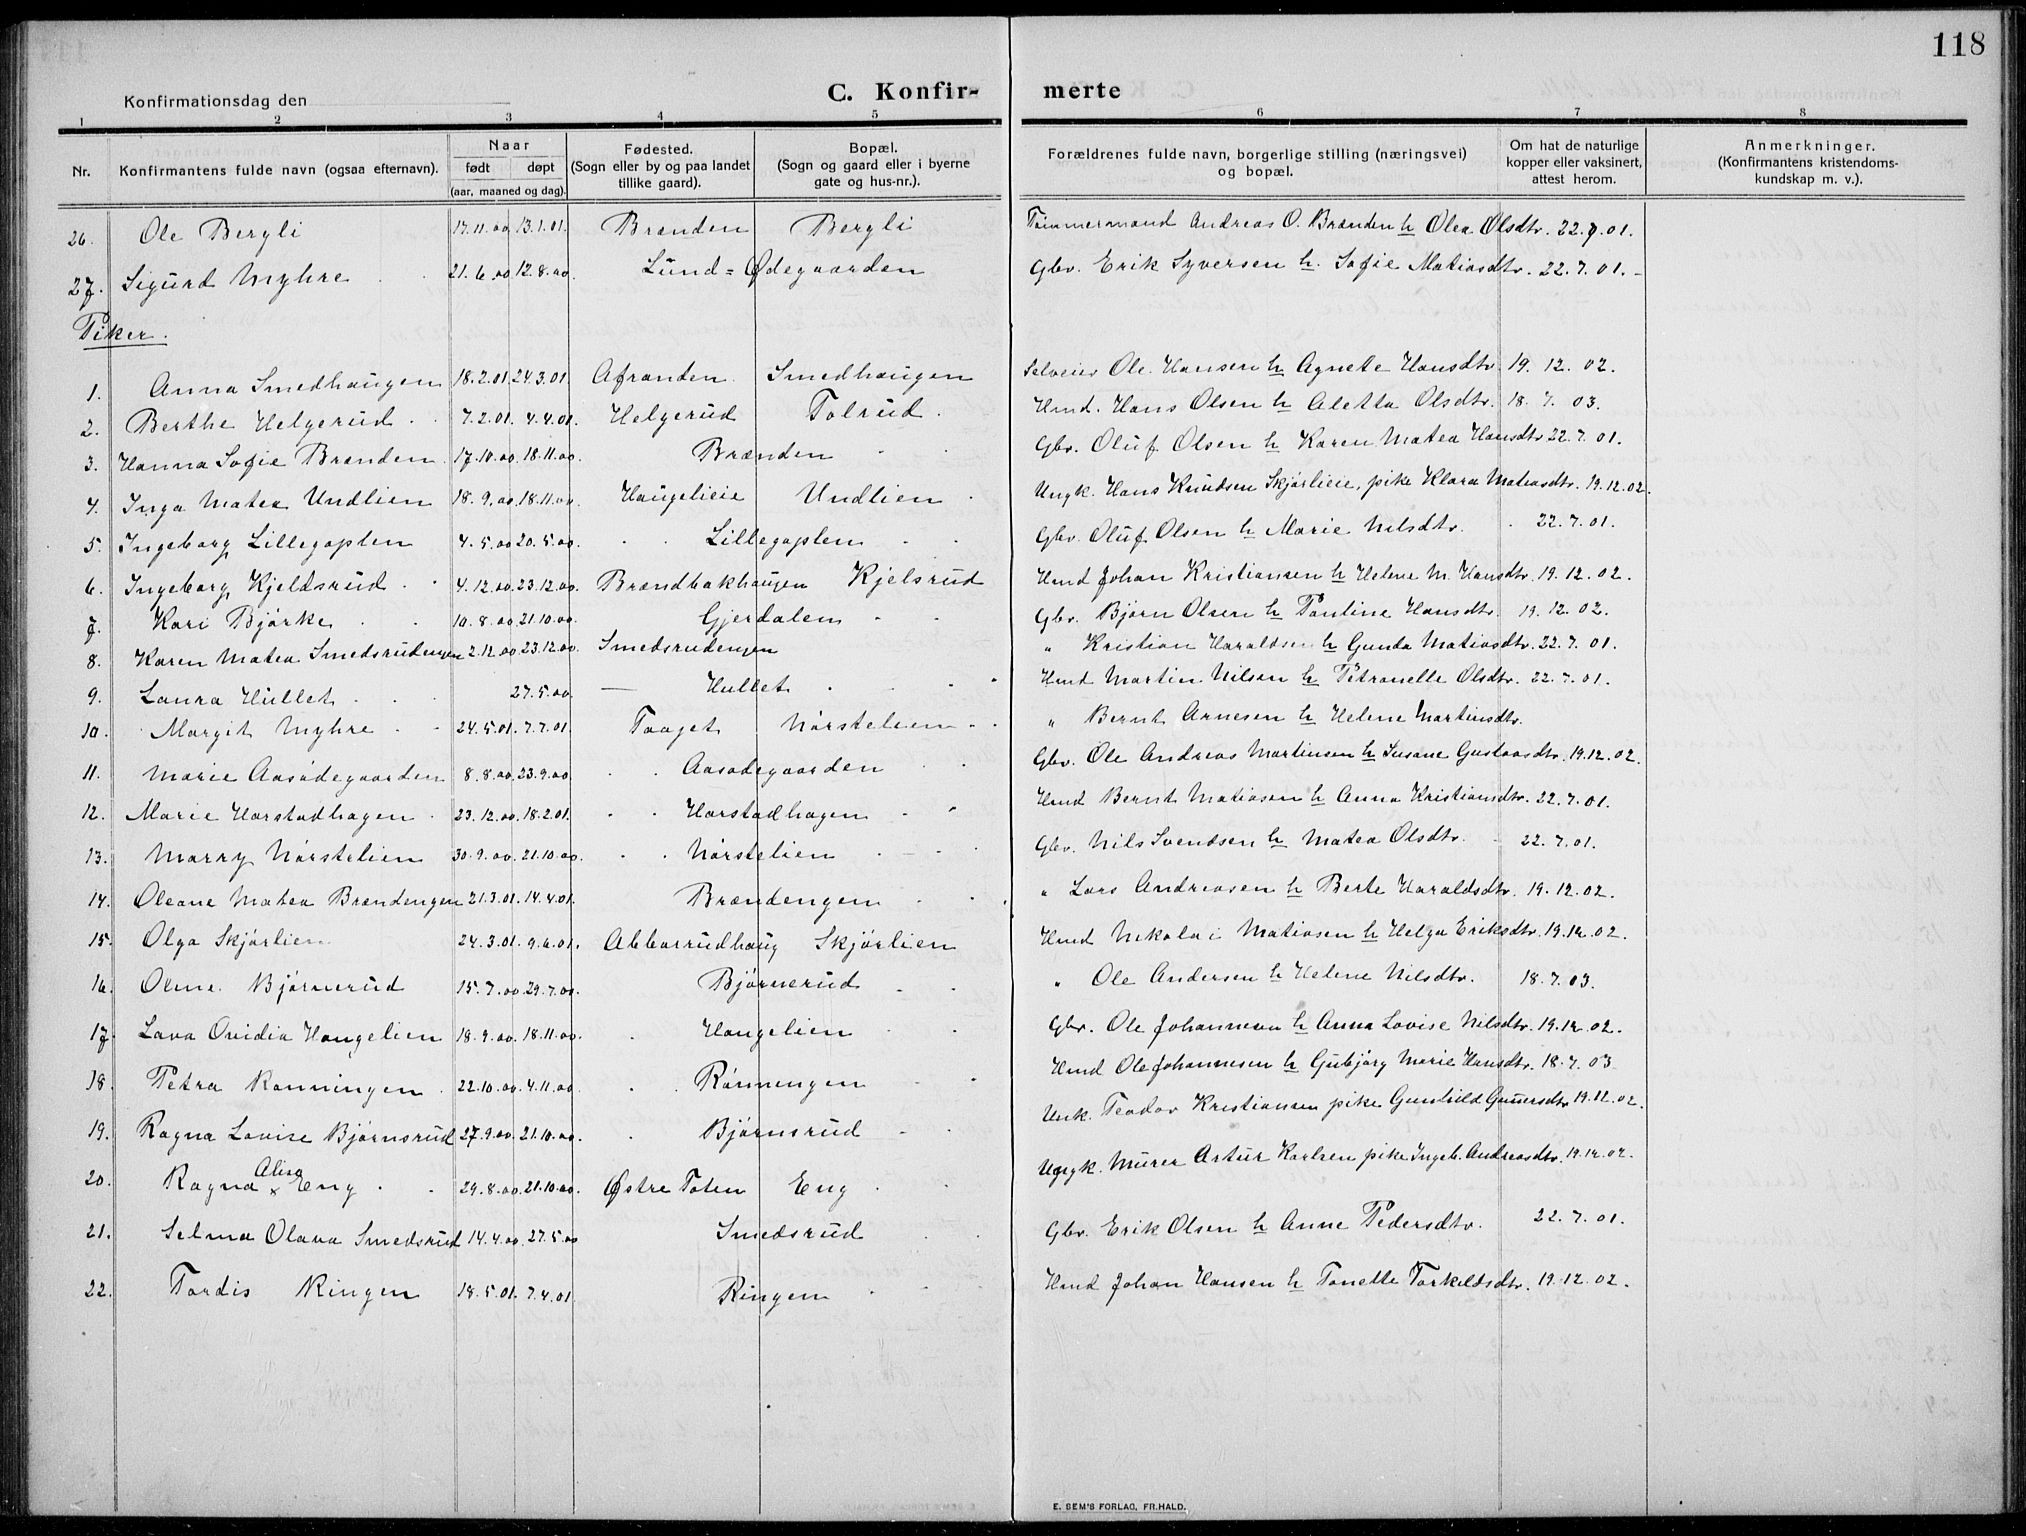 118
Konfirmationsdag den
C. Konfir- merte
1 2 3 4 5 6 7 8
Nr. Konfirmantens fulde navn (ogsaa efternavn). Naar født døpt (aar, maaned og dag). Fødested. (Sogn eller by og paa landet tillike gaard). Bopæl. (Sogn og gaard eller i byerne gate og hus-nr.). Forældrenes fulde navn, borgerlige stilling (næringsvei) og bopæl. Om hat de naturlige kopper eller vaksinert, attest herom. Anmerkninger. (Konfirmantens kristendoms-kundskap m. v.).
26. Ole Bergli 17.11.00 13.1.01. Brænden Bergli Tømmermand Andreas O. Brænden h Olea Olsdtr. 22.7.01.
27. Sigurd Myhre 21.6.00 12.8.00. Lund=Ødegaarden Gbr. Erik Syversen h. Sofie Matiasdtr. 22.7.01.
Piker.
1. Anna Smedhaugen 18.2.01. 24.3.01. Afranden Smedhaugen Selveier Ole Hansen h Agnete Hansdtr. 19.12.02.
2. Berthe Helgerud 7.2.01. 4.4.01. Helgerud Tolrud. Hmd. Hans Olsen h Aletta Olsdtr. 18.7.03.
3. Hanna Sofie Brænden 17.10.00. 18.11.00. Brænden Gbr. Oluf Olsen h Karen Matea Hansdtr 22.7.01.
4. Inga Matea Undlien 18.9.00. 18.11.00. Haugelieie Undlien Ungk. Hans Knudsen Skjørlieie, pike Klara Matiasdtr. 19.12.02.
5. Ingeborg Lillegaplen 4.5.00 20.5.00. Lillegaplen Gbr. Oluf Olsen h Marie Nilsdtr. 22.7.01.
6. Ingeborg Kjeldsrud 4.12.00. 23.12.00. Brændbakhaugen Kjelsrud Hmd Johan Kristiansen h Helene M. Hansdtr. 19.12.02.
7. Kari Bjørke 10.8.00. 21.10.00. Gjerdalen Gbr. Bjørn Olsen h Pauline Hansdtr. 19.12.02.
8. Karen Matea Smedsrudengen 2.12.00 23.12.00. Smedsrudengen " Kristian Haraldsen h Gunda Matiasdtr. 22.7.01.
9. Laura Hullet 27.5.00. — Hullet Hmd Martin Nilsen h Petronelle Olsdtr. 22.7.01.
10. Margit Myhre 24.5.01. 7.7.01. Taaget Nørstelien " Bernt Arnesen h Helene Martinsdtr.
11. Marie Aasødegaarden 8.8.00. 23.9.00. Aasødegaarden Gbr. Ole Andreas Martinsen h Susane Gustavsdtr. 19.12.02.
12. Marie Harstadhagen 23.12.00. 18.2.01. Harstadhagen Hmd Bernt Matiasen h Anna Kristiansdtr. 22.7.01.
13. Marry Nørstelien 30.9.00. 21.10.00. Nørstelien Gbr. Nils Svendsen h Matea Olsdtr. 22.7.01.
14. Oleane Matea Brændengen 21.3.01. 14.4.01. Brændengen " Lars Andreasen h Berte Haraldsdtr. 19.12.02.
15. Olga Skjørlien 24.3.01. 9.6.01. Abborrudhaug Skjørlien Hmd Nikolai Matiasen h Helga Eriksdtr. 19.12.02.
16. Oline Bjørnerud 15.7.00. 29.7.00. Bjørnerud " Ole Andersen h Helene Nilsdtr. 18.7.03.
17. Lava Ovidia Haugelien 18.9.00. 18.11.00. Haugelien Gbr. Ole Johannesen h Anna Lovise Nilsdtr. 19.12.02.
18. Petra Rønningen 22.10.00. 4.11.00. Rønnengen Hmd Ole Johannesen h Gubjørg Marie Hansdtr. 18.7.03
19. Ragna Lovise Bjørnsrud 27.9.00. 21.10.00. Bjørnsrud Unk. Teodor Kristiansen pike Gunhild Gunersdtr 19.12.02.
20. Ragna Alisa x Eng 29.8.00. 21.10.00. Østre Toten Eng Ungk. Murer Artur Karlsen pike Ingeb. Andreasdtr. 19.12.02.
21. Selma Olava Smedsrud 14.4.00. 27.5.00 Smedsrud Gbr. Erik Olsen h Anne Pedersdtr. 22.7.01.
22. Tordis Ringen 18.5.01. 7.4.01. Ringen Hmd Johan Hansen h Tonette Torkeldsdtr. 19.12.02.
E. SEM'S FORLAG, FR.HALD.